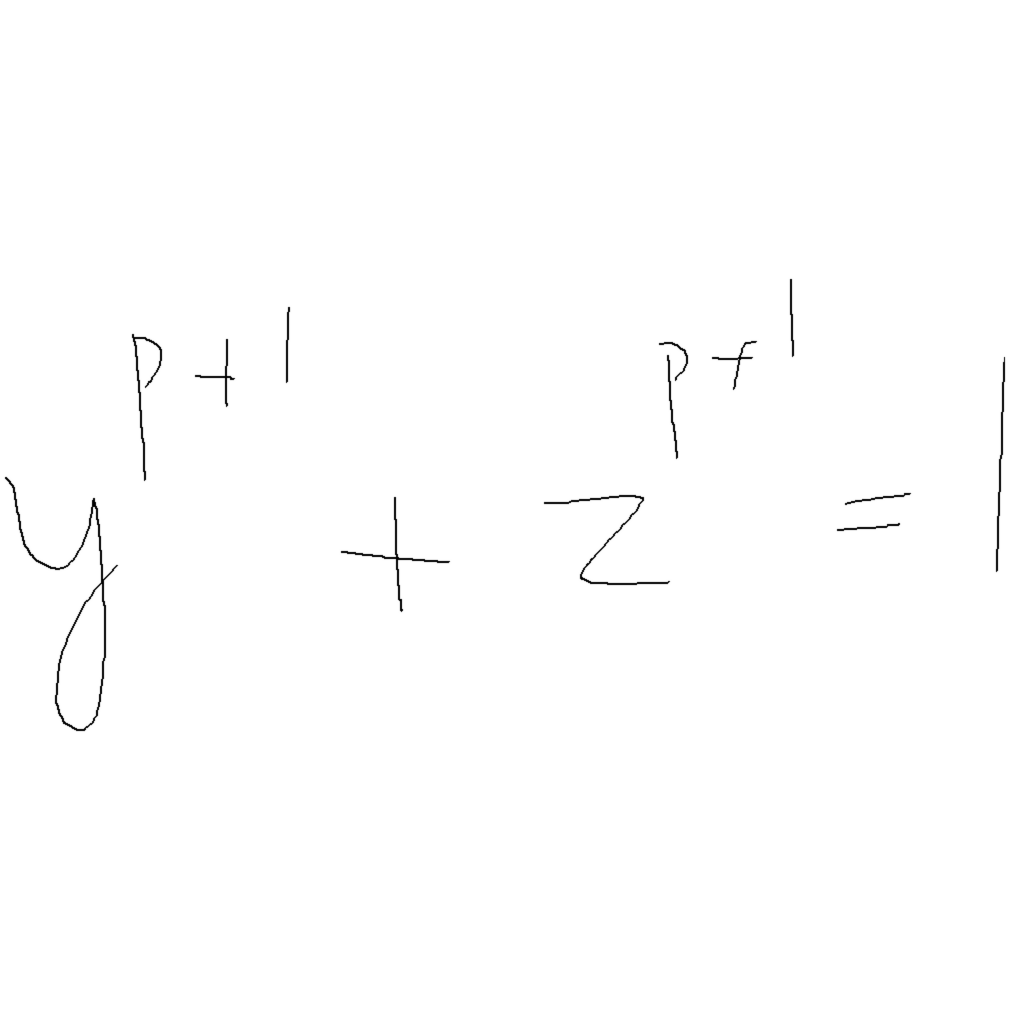 y^{p+1} + z^{p+1} = 1